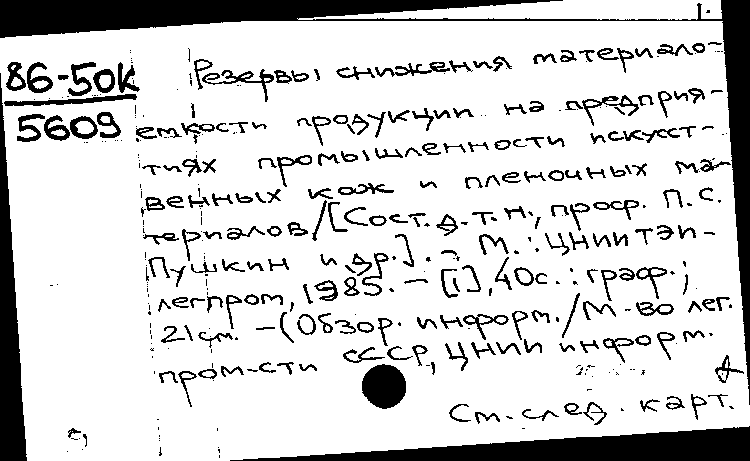 1.
86-50К
5609
Резервы снижения материало-
емкости продукции на предприя-
тиях промышленности искусст-
венных кож и пленочных ма-
териалов/[Сост. д.т.н., проф. П.С.
Пушкин и др.]. - М.: ЦНИИТЭИ-
легпром, 1985. - [1], 40с.: граф.;
21см. - (Обзор. информ./М-во лег.
пром-сти СССР, ЦНИИ информ.
См. след. карт.